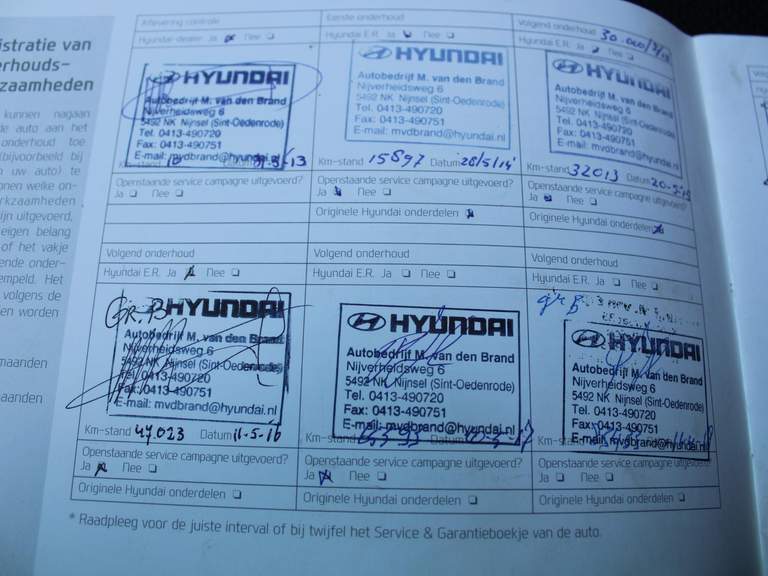 istratie van
erhouds-
kzaamheden
kunnen nagaan
de auto aan het
onderhoud toe
(bijvoorbeeld bij
n uw auto) te
onen welke on-
rkzaamheden
ijn uitgevoerd,
eigen belang
of het vakje
ende onder-
empeld. Het
volgens de
en worden
maanden
aanden
Aflevering controle
Hyundai-dealer Ja Nee
HYUNDAI
Autobedrijf M. van den Brand
Nijverheidsweg 6
5492 NK Nijnsel (Sint-Oedenrode)
Tel. 0413-490720
Fax: 0413-490751
E-mail: mvdbrand@hyundai.nl
Km-stand 10
Openstaande service campagne uitgevoerd?
Ja Nee
Eerste onderhoud
Hyundai E.R. Ja Nee
HYUNDAI
Autobedrijf M. van den Brand
Nijverheidsweg 6
5492 NK Nijnsel (Sint-Oedenrode)
Tel. 0413-490720
Fax: 0413-490751
E-mail: mvdbrand@hyundai.nl
Km-stand 15897 Datum 28/5/14
Openstaande service campagne uitgevoerd?
Ja Nee
Originele Hyundai onderdelen
Volgend onderhoud 30.000/3/
Hyundai E.R. Ja Nee
HYUNDAI
Autobedrijf M. van den Brand
Nijverheidsweg 6
5492 NK Nijnsel (Sint-Oedenrode)
Tel. 0413-490720
Fax: 0413-490751
E-mail: mvdbrand@hyundai.nl
Km-stand 32013 Datum
Openstaande service campagne uitgevoerd?
Ja Nee
Originele Hyundai onderdelen
Volgend onderhoud
Hyundai E.R. Ja Nee
GR.B
HYUNDAI
Autobedrijf M. van den Brand
Nijverheidsweg 6
5492 NK Nijnsel (Sint-Oedenrode)
Tel. 0413-490720
Fax: 0413-490751
E-mail: mvdbrand@hyundai.nl
Km-stand 47023 Datum 11-5-16
Openstaande service campagne uitgevoerd?
Ja Nee
Originele Hyundai onderdelen
Volgend onderhoud
Hyundai E.R. Ja Nee
HYUNDAI
Autobedrijf M. van den Brand
Nijverheidsweg 6
5492 NK Nijnsel (Sint-Oedenrode)
Tel. 0413-490720
Fax: 0413-490751
E-mail: mvdbrand@hyundai.nl
Km-stand Datum
Openstaande service campagne uitgevoerd?
Ja Nee
Originele Hyundai onderdelen
Volgend onderhoud
Hyundai E.R. Ja Nee
gr B
HYUNDAI
Autobedrijf M. van den Brand
Nijverheidsweg 6
5492 NK Nijnsel (Sint-Oedenrode)
Tel. 0413-490720
Fax: 0413-490751
E-mail: mvdbrand@hyundai.nl
Km-stand
Openstaande service campagne uitgevoerd?
Ja Nee
Originele Hyundai onderdelen
* Raadpleeg voor de juiste interval of bij twijfel het Service & Garantieboekje van de auto.